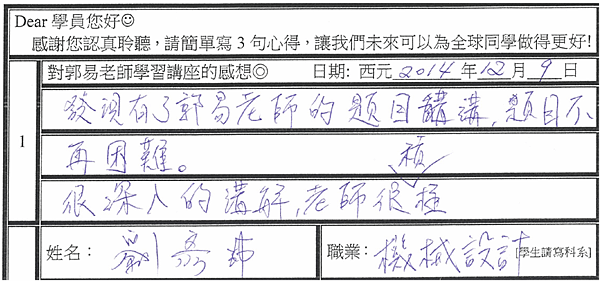 Dear 學員您好☺
感謝您認真聆聽，請簡單寫 3 句心得，讓我們未來可以為全球同學做得更好!
對郭易老師學習講座的感想◎ 日期: 西元 2014 年 12 月 9 日
1
發現有了郭易老師的題目講，題目不
再困難。
很深入的講解，老師很積極
姓名：劉
職業：機械設計 [學生請寫科系]